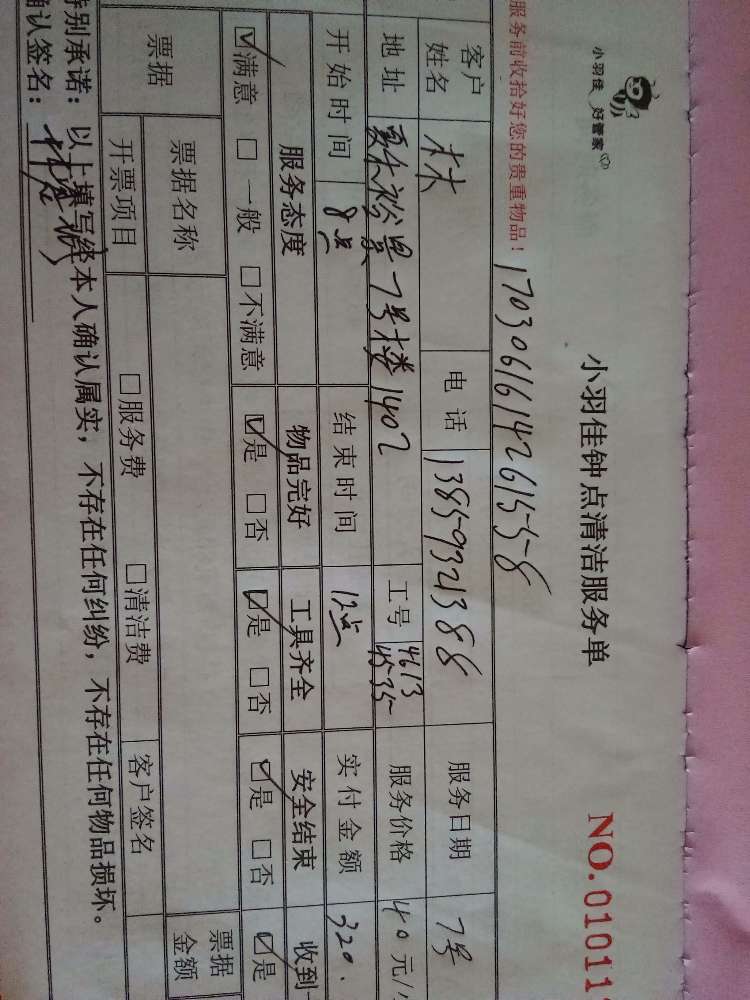 小羽佳 好管家
小羽佳钟点清洁服务单
NO.01011
服务前收拾好您的贵重物品！
17030616142615558
客户姓名 林 电话 13859321388 服务日期 7号
地址 夏禾裕景7号楼1402 工号 4613 4535 服务价格 40元/
开始时间 8点 结束时间 12点 实付金额 320.
服务态度 物品完好 工具齐全 安全结束 收到
☑满意 □一般 □不满意 ☑是 □否 ☑是 □否 ☑是 □否 ☑是
票据 票据名称 票据金额
开票项目 □服务费 □清洁费 客户签名
特别承诺：以上填写经本人确认属实，不存在任何纠纷，不存在任何物品损坏。
确认签名：